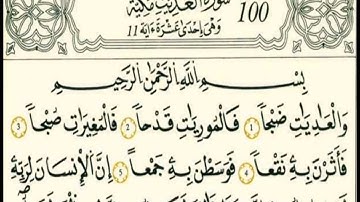 سورة العديت مكية 100
وهي إحدى عشرة ءاية 11
بِسْمِ اللَّهِ الرَّحْمَٰنِ الرَّحِيمِ
وَالْعَادِيَاتِ ضَبْحاً 1 فَالْمُورِيَاتِ قَدْحاً 2 فَالْمُغِيرَاتِ صُبْحاً 3
فَأَثَرْنَ بِهِ نَقْعاً 4 فَوَسَطْنَ بِهِ جَمْعاً 5 إِنَّ الْإِنسَانَ لِرَبِّهِ